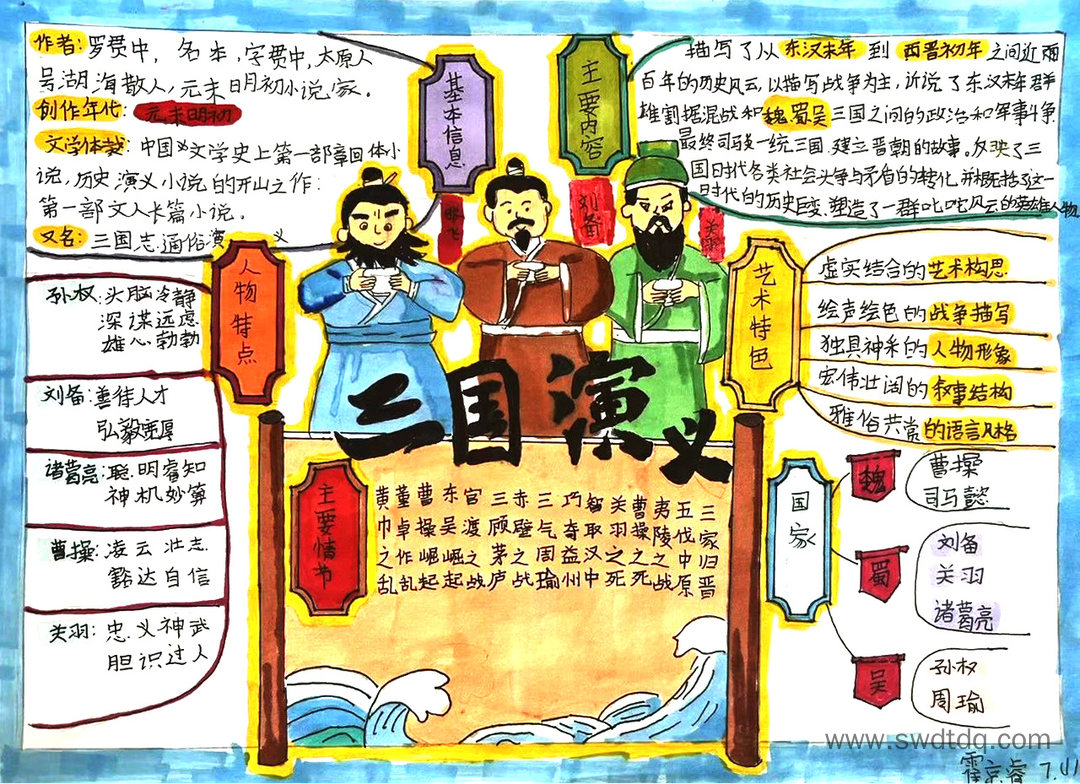 作者：罗贯中，名本，字贯中，太原人
号湖海散人，元末明初小说家。
创作年代：元末明初
文学体裁：中国文学史上第一部章回体小
说，历史演义小说的开山之作；
第一部文人长篇小说。
又名：三国志通俗演义
基本信息
主要内容
描写了从东汉末年到西晋初年之间近
百年的历史风云，以描写战争为主，诉说了东汉末年群
雄割据混战和魏蜀吴三国之间的政治和军事斗争
最终司马炎一统三国，建立晋朝的故事。反映了三
国时代各类社会斗争与矛盾的转化，并概括了这一
时代的历史巨变，塑造了一群叱咤风云的英雄人物
张飞
刘备
关羽
人物特点
孙权：头脑冷静
深谋远虑
雄心勃勃
刘备：善待人才
弘毅宽厚
诸葛亮：聪明睿知
神机妙算
曹操：凌云壮志
豁达自信
关羽：忠义神武
胆识过人
艺术特色
虚实结合的艺术构思
绘声绘色的战争描写
独具神采的人物形象
宏伟壮阔的叙事结构
雅俗共赏的语言风格
三国演义
主要情节
黄巾之乱
董卓作乱
曹操崛起
东吴崛起
官渡之战
三顾茅庐
赤壁之战
三气周瑜
巧夺益州
智取汉中
关羽之死
曹操之死
夷陵之战
五伐中原
三家归晋
国家
魏
曹操
司马懿
蜀
刘备
关羽
诸葛亮
吴
孙权
周瑜
www.swdtdq.com
7.11